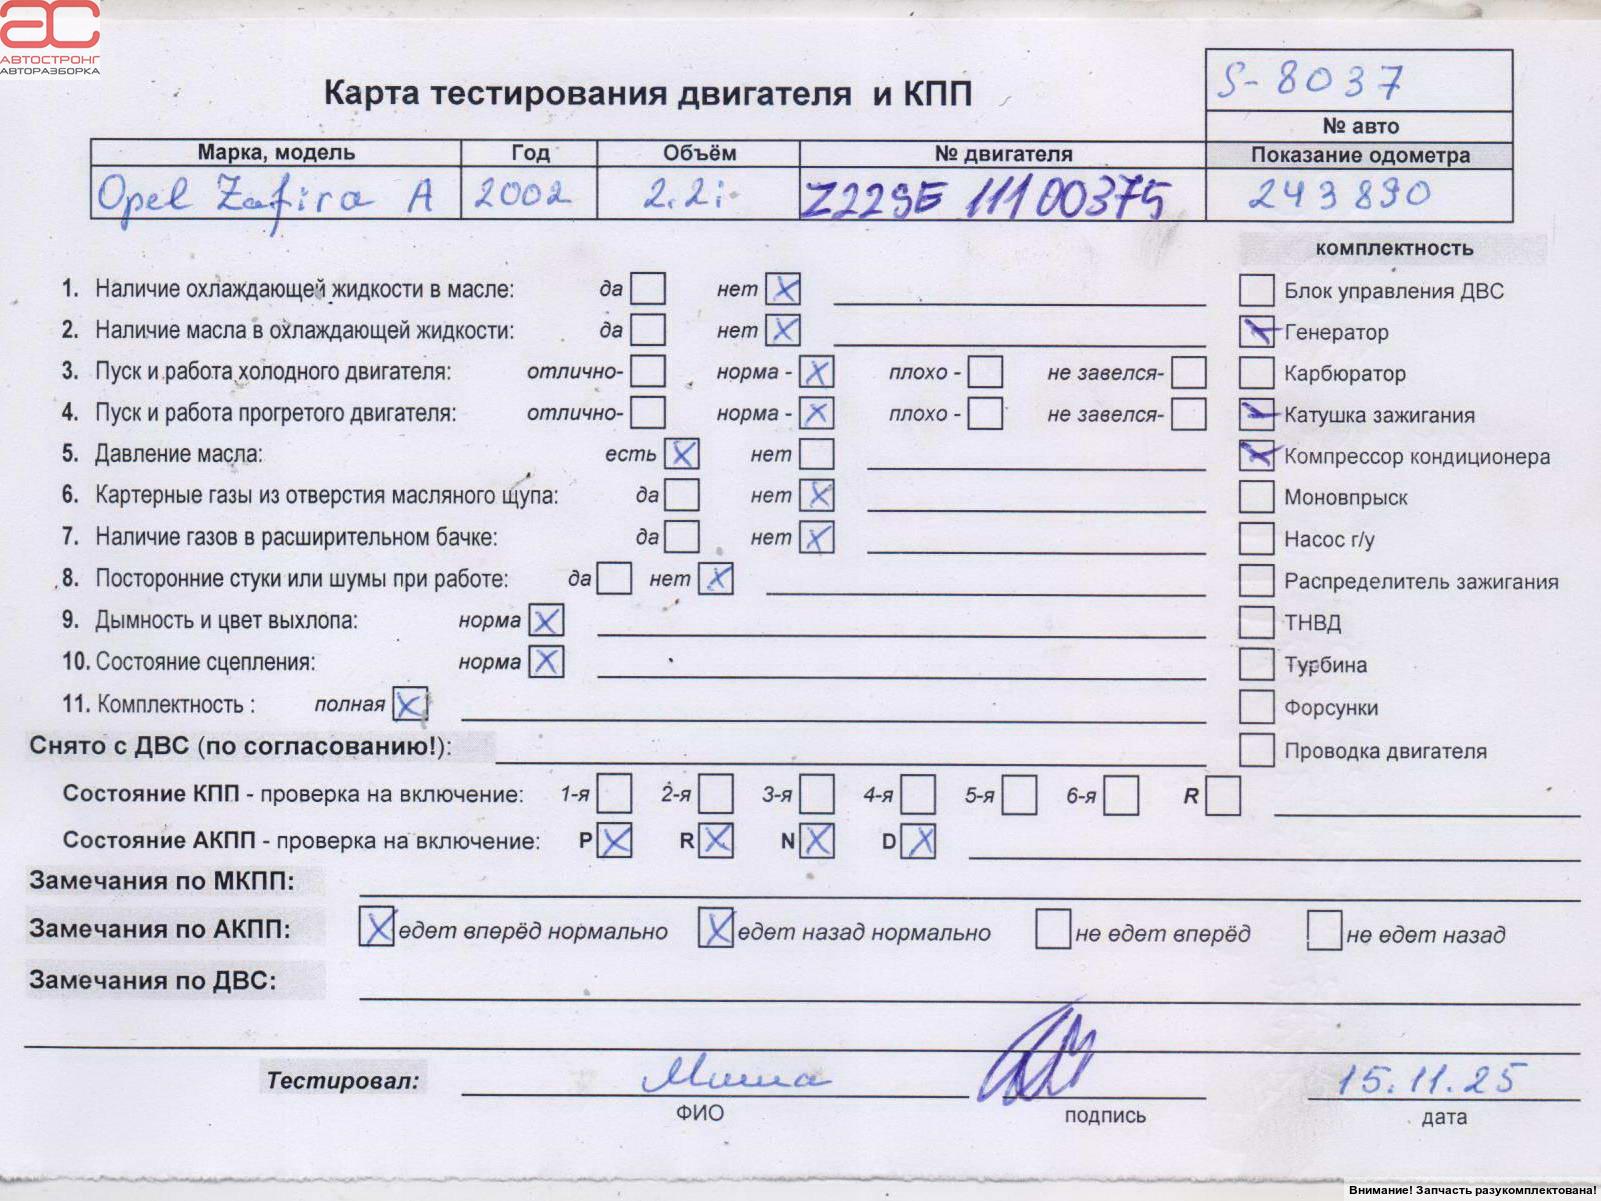 АС
АВТОСТРОНГ
АВТОРАЗБОРКА
Карта тестирования двигателя и КПП
S-8037
№ авто
Марка, модель Год Объём № двигателя Показание одометра
Opel Zafira A 2002 2.2i Z22SE 11100375 243890
комплектность
1. Наличие охлаждающей жидкости в масле: да нет X
Блок управления ДВС
2. Наличие масла в охлаждающей жидкости: да нет X
Генератор
3. Пуск и работа холодного двигателя: отлично- норма - X плохо - не завелся-
Карбюратор
4. Пуск и работа прогретого двигателя: отлично- норма - X плохо - не завелся-
Катушка зажигания
5. Давление масла: есть X нет
Компрессор кондиционера
6. Картерные газы из отверстия масляного щупа: да нет X
Моновпрыск
7. Наличие газов в расширительном бачке: да нет X
Насос г/у
8. Посторонние стуки или шумы при работе: да нет X
Распределитель зажигания
9. Дымность и цвет выхлопа: норма X
ТНВД
10. Состояние сцепления: норма X
Турбина
11. Комплектность : полная X
Форсунки
Снято с ДВС (по согласованию!):
Проводка двигателя
Состояние КПП - проверка на включение: 1-я 2-я 3-я 4-я 5-я 6-я R
Состояние АКПП - проверка на включение: P X R X N X D X
Замечания по МКПП:
Замечания по АКПП: X едет вперёд нормально X едет назад нормально не едет вперёд не едет назад
Замечания по ДВС:
Тестировал: Миша 15.11.25
ФИО подпись дата
Внимание! Запчасть разукомплектована!